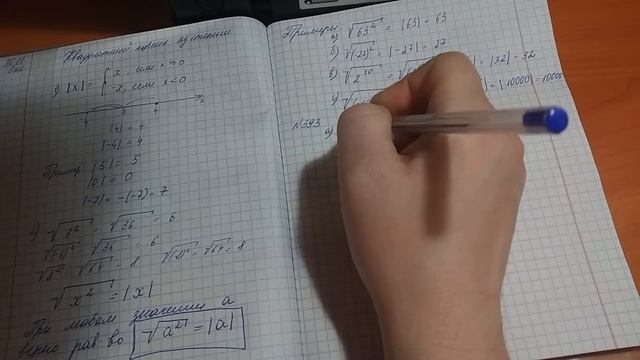 Квадратный корень из степени
1) |x| = { x, если x ≥ 0
-x, если x < 0
-4 0 4 x
|4| = 4
|-4| = 4
Пример |5| = 5
|0| = 0
|-7| = -(-7) = 7
2) √6² = √36 = 6
√(-6)² = √36 = 6
√8² = √64 = 8 √(-8)² = √64 = 8
√x² = |x|
При любом значении а
верно рав-во √a² = |a|
Примеры
а) √63² = |63| = 63
б) √(-27)² = |-27| = 27
в) √2¹⁰ = |32| = 32
г) = |10000| = 10000
№393
а)